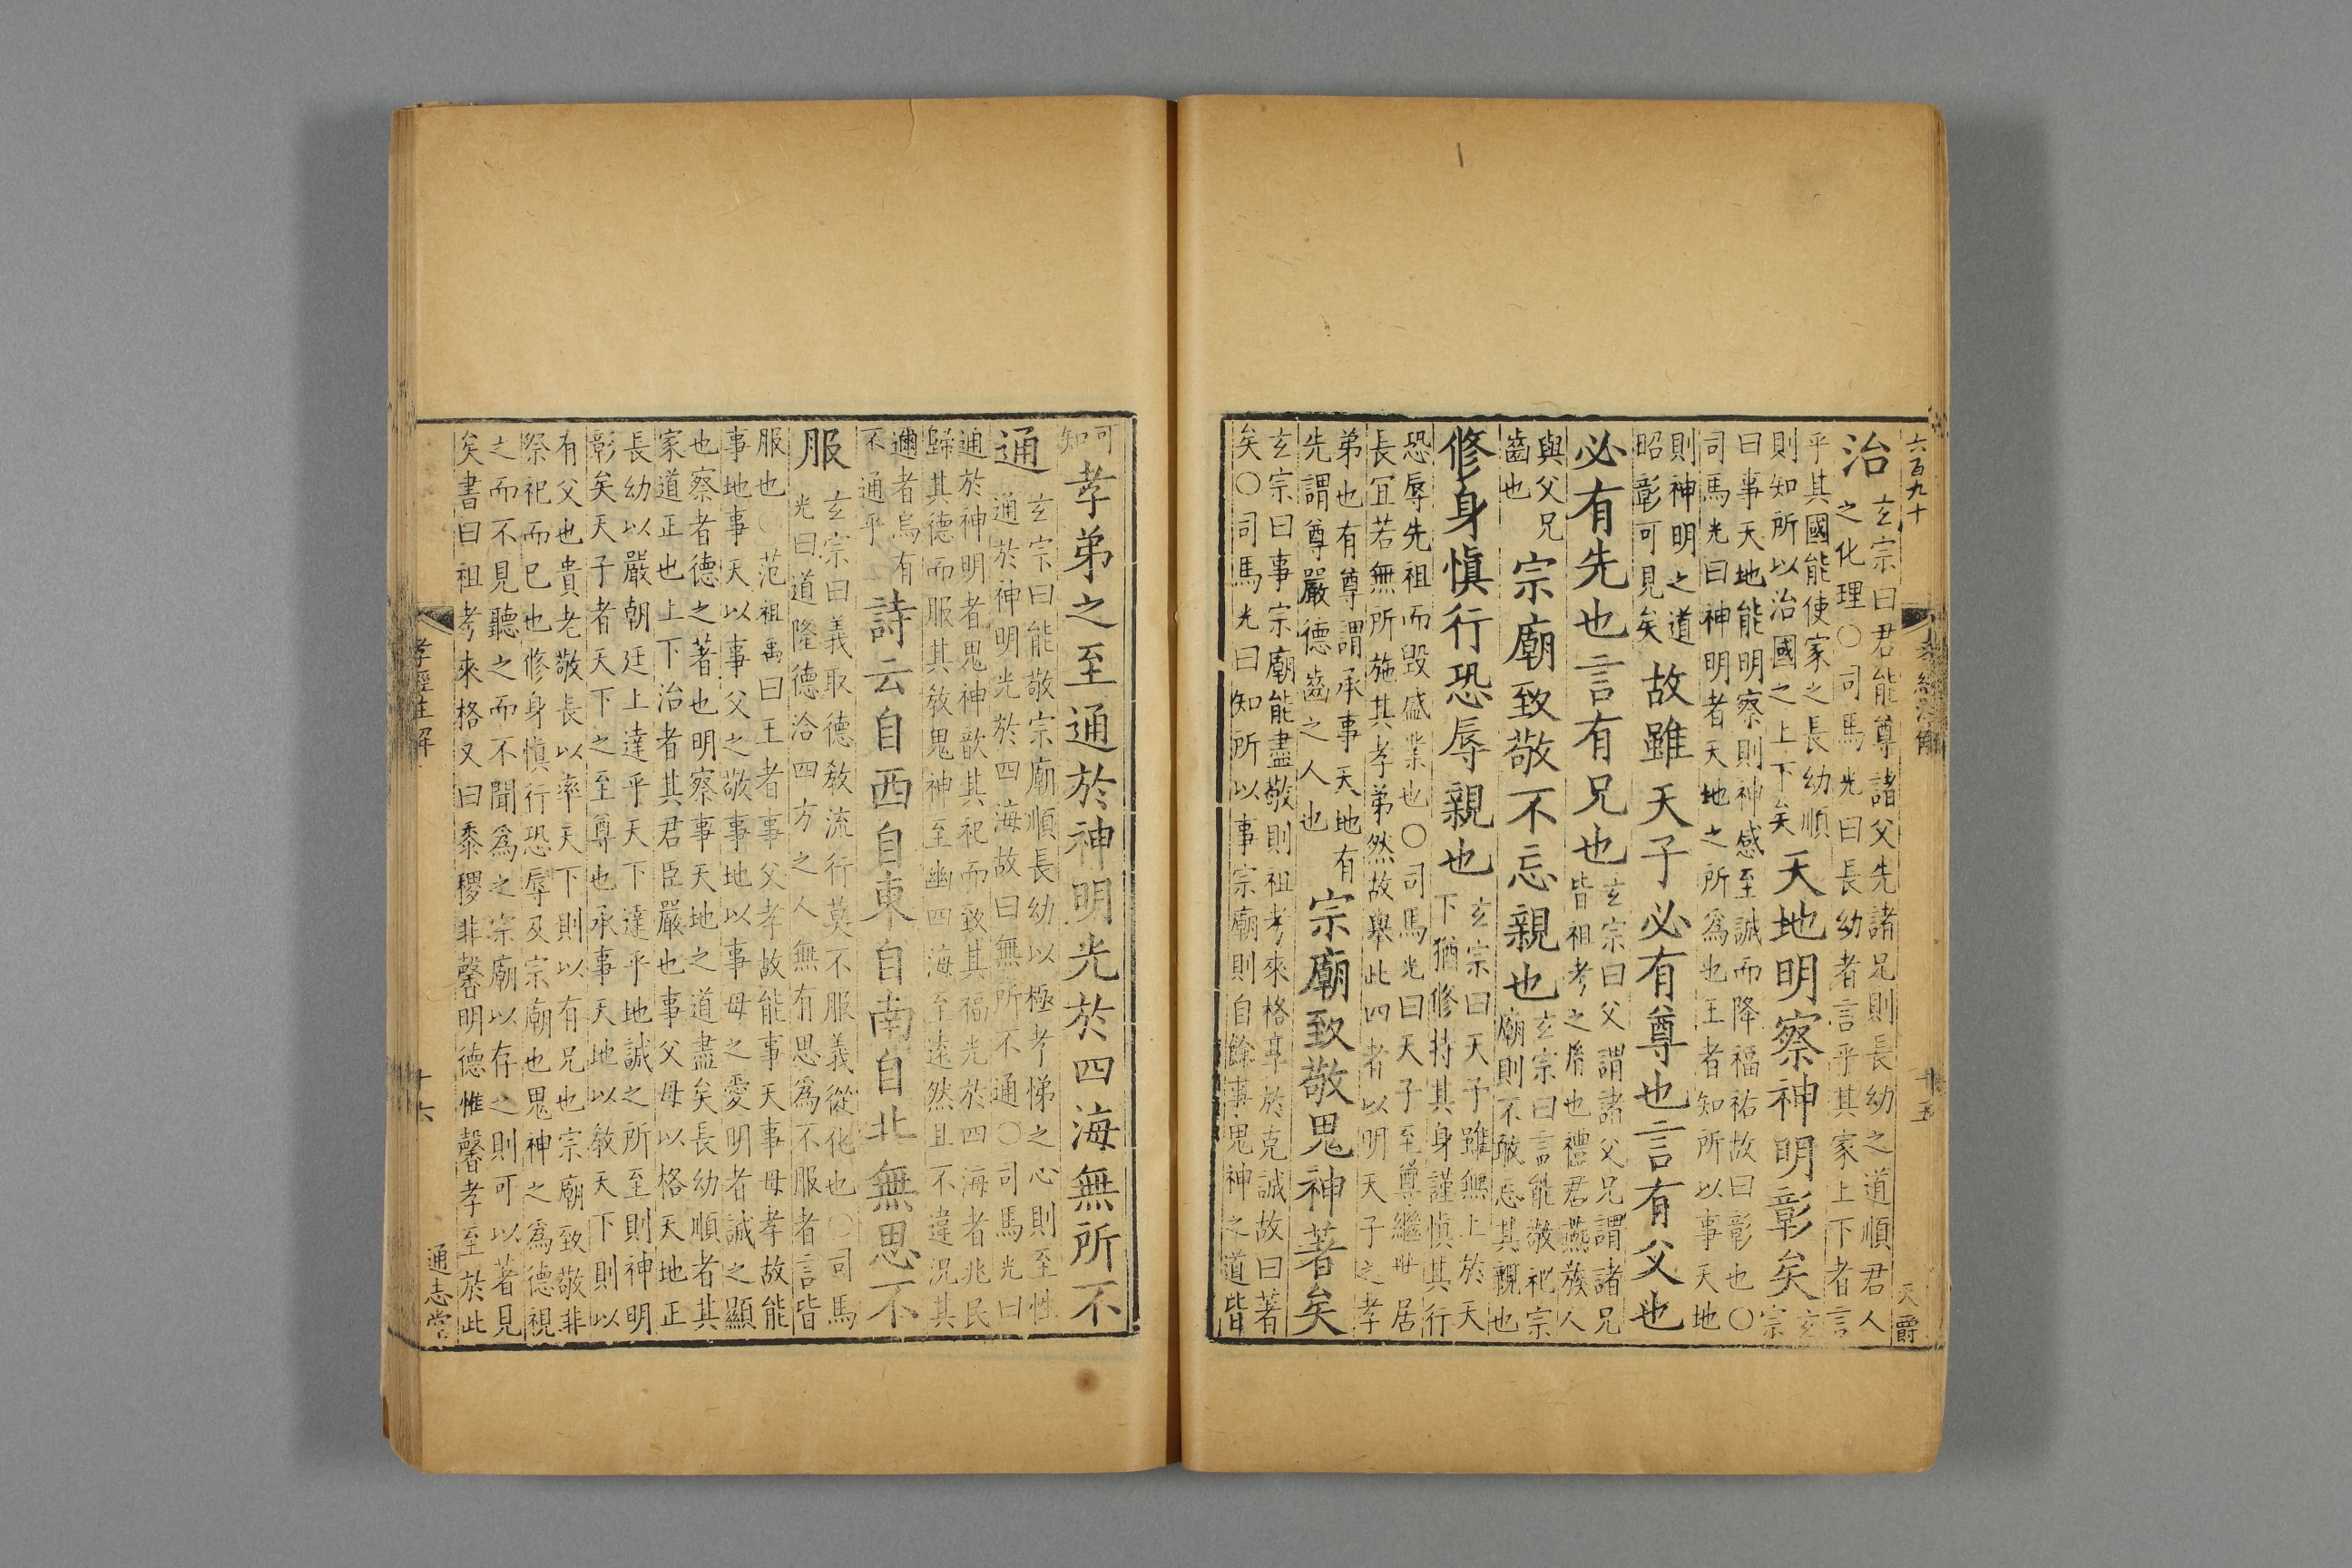 六百九十
孝經注解
十五
天爵
治
玄宗曰君能尊諸父先諸兄則長幼之道順君人
之化理○司馬光曰長幼者言乎其家上下者言
乎其國能使家之長幼順
則知所以治國之上下矣
天地明察神明彰矣
玄
宗
曰事天地能明察則神感至誠而降福祐故曰彰也○
司馬光曰神明者天地之所爲也王者知所以事天地
則神明之道
昭彰可見矣
故雖天子必有尊也言有父也
必有先也言有兄也
玄宗曰父謂諸父兄謂諸兄
皆祖考之胤也禮君燕族人
與父兄
齒也
宗廟致敬不忘親也
玄宗曰言能敬祀宗
廟則不敢忘其親也
修身慎行恐辱親也
玄宗曰天子雖無上於天
下猶修持其身謹慎其行
恐辱先祖而毀盛業也○司馬光曰天子至尊繼世居
長宜若無所施其孝弟然故舉此四者以明天子之孝
弟也有尊謂承事天地有
先謂尊嚴德齒之人也
宗廟致敬鬼神著矣
玄宗曰事宗廟能盡敬則祖考來格享於克誠故曰著
矣○司馬光曰知所以事宗廟則自餘事鬼神之道皆
可
知
孝弟之至通於神明光於四海無所不
通
玄宗曰能敬宗廟順長幼以極孝悌之心則至性
通於神明光於四海故曰無所不通○司馬光曰
通於神明者鬼神歆其祀而致其福光於四海者兆民
歸其德而服其敎鬼神至幽四海至遠然且不違況其
邇者烏有
不通乎
詩云自西自東自南自北無思不
服
玄宗曰義取德敎流行莫不服義從化也○司馬
光曰道隆德洽四方之人無有思爲不服者言皆
服也○范祖禹曰王者事父孝故能事天事母孝故能
事地事天以事父之敬事地以事母之愛明者誠之顯
也察者德之著也明察事天地之道盡矣長幼順者其
家道正也上下治者其君臣嚴也事父母以格天地正
長幼以嚴朝廷上達乎天下達乎地誠之所至則神明
彰矣天子者天下之至尊也承事天地以敎天下則以
有父也貴老敬長以率天下則以有兄也宗廟致敬非
祭祀而已也修身慎行恐辱及宗廟也鬼神之爲德視
之而不見聽之而不聞爲之宗廟以存之則可以著見
矣書曰祖考來格又曰黍稷非馨明德惟馨孝至於此
孝經注解
十六
通志堂